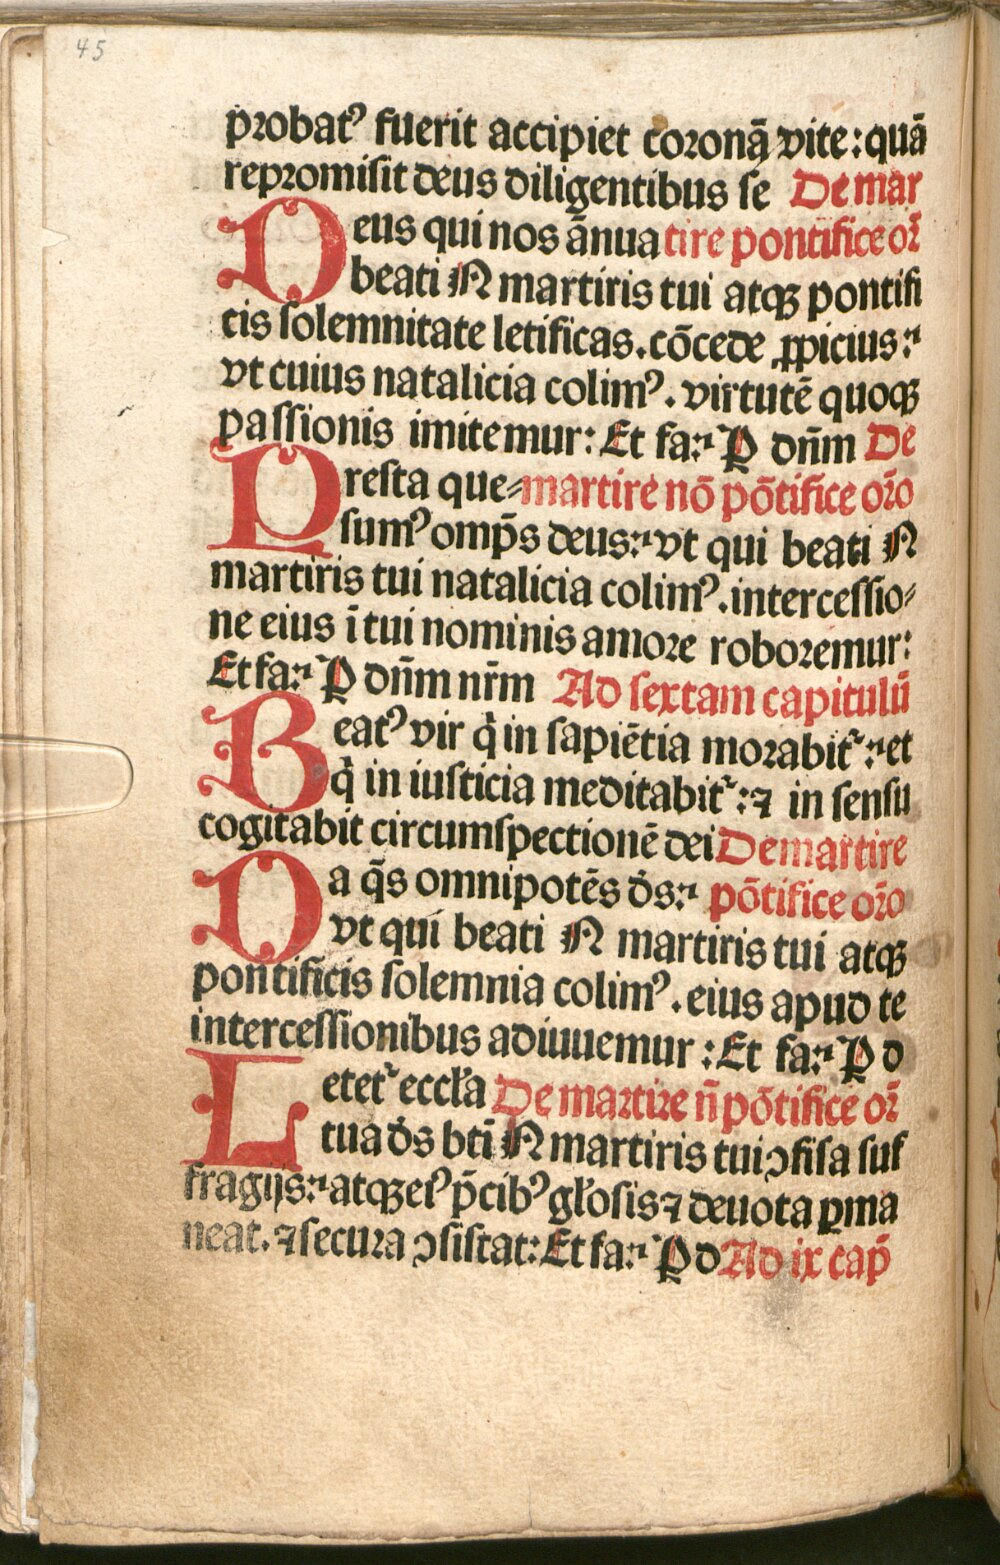 45
probatꝰ fuerit accipiet coronā vite: quā
repromisit deus diligentibus se De mar
Deus qui nos ānua tire pontifice or̄
beati N martiris tui atqꝫ pontifi
cis solemnitate letificas. cōcede ꝓpicius:
vt cuius natalicia colimꝰ. virtutē quoqꝫ
passionis imitemur: Et fa: P dn̄m De
Presta que martire nō pōtifice or̄o
sumꝰ omp̄s deus: vt qui beati N
martiris tui natalicia colimꝰ. intercessio
ne eius ī tui nominis amore roboremur:
Et fa: P dn̄m nr̄m Ad sextam capitulū
Beatꝰ vir q̇ in sapiētia morabit᷑: et
q̇ in iusticia meditabit᷑: ⁊ in sensu
cogitabit circumspectionē dei De martire
Da q̄s omnipotēs ds̄: pōtifice or̄o
vt qui beati N martiris tui atqꝫ
pontificis solemnia colimꝰ. eius apud te
intercessionibus adiuuemur: Et fa: P d
Letet᷑ eccl̄a De martire n̄ pōtifice or̄
tua ds̄ btī N martiris tui ꝯfisa suf
fragijs: atqꝫ eiꝰ p̄cibꝰ gl̄osis ⁊ deuota ꝑma
neat. ⁊ secura ꝯsistat: Et fa: P d Ad ix cap̄